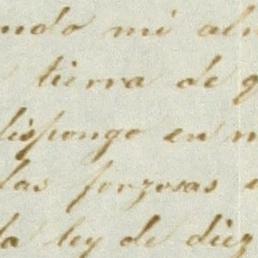 ndo mi al
tierra de
dispongo en
las forzosas
la ley de diez